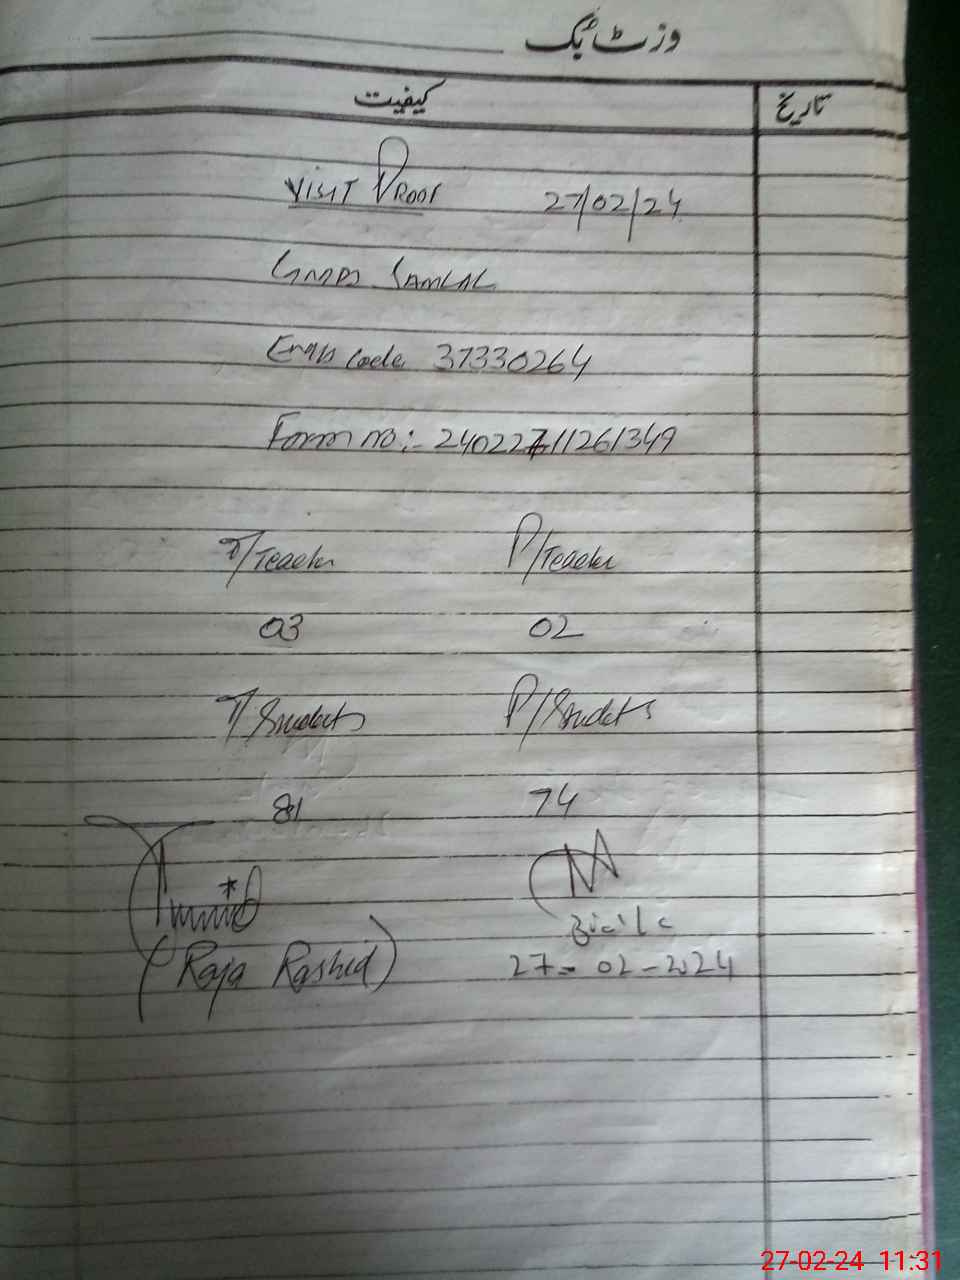 وزٹ بُک
کیفیت تاریخ
VISIT PROOF 27/02/24
GMPS SAMLAL
Emis Code 37330264
Form no:- 24022711261349
T/Teacher P/Teacher
03 02
T/Students P/Students
81 74
(Raja Rashid)
27-02-2024
27-02-24 11:31